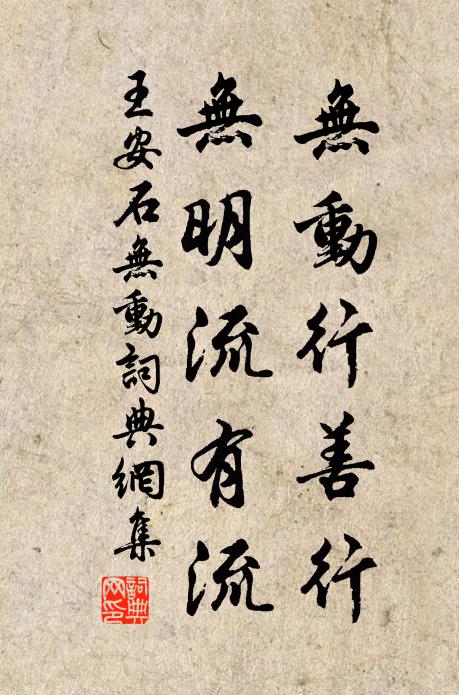 無動行善行
無明流有流
王安石無動詞典網集
詞典網印